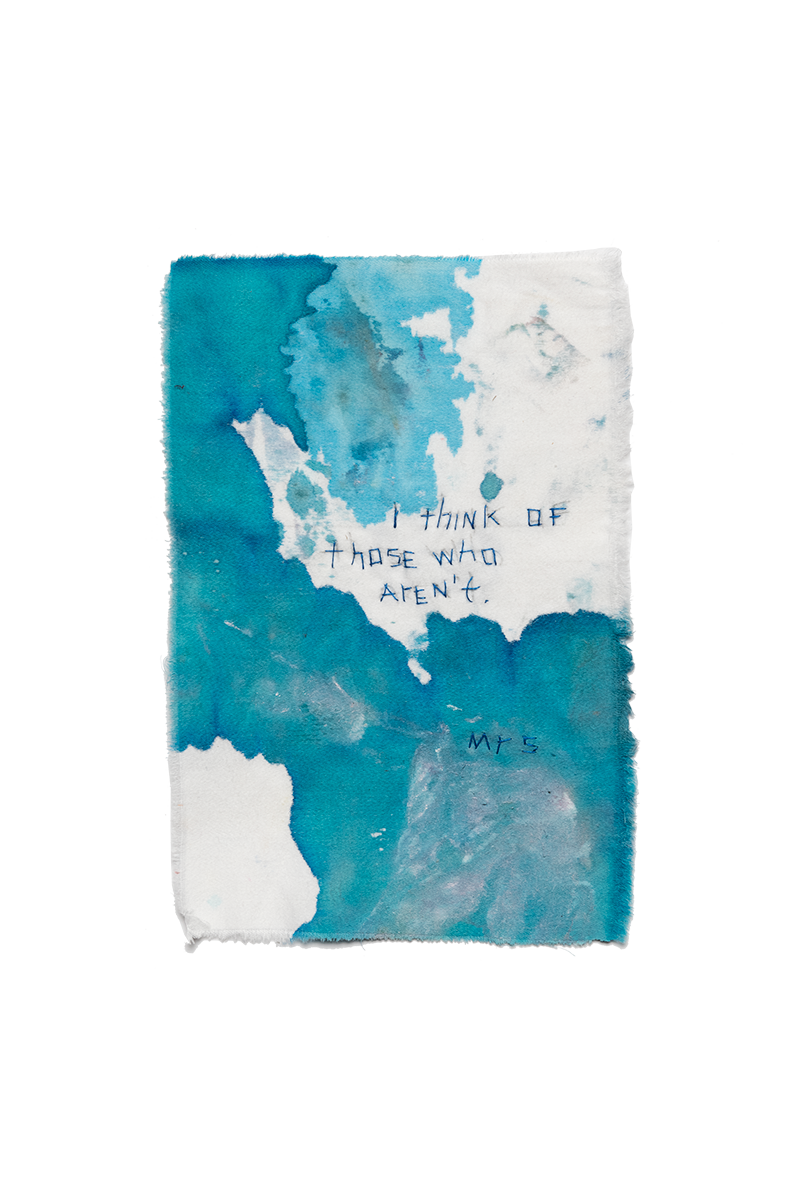 I thINK OF
thOSE WhO
ArEN't.
Mr S.